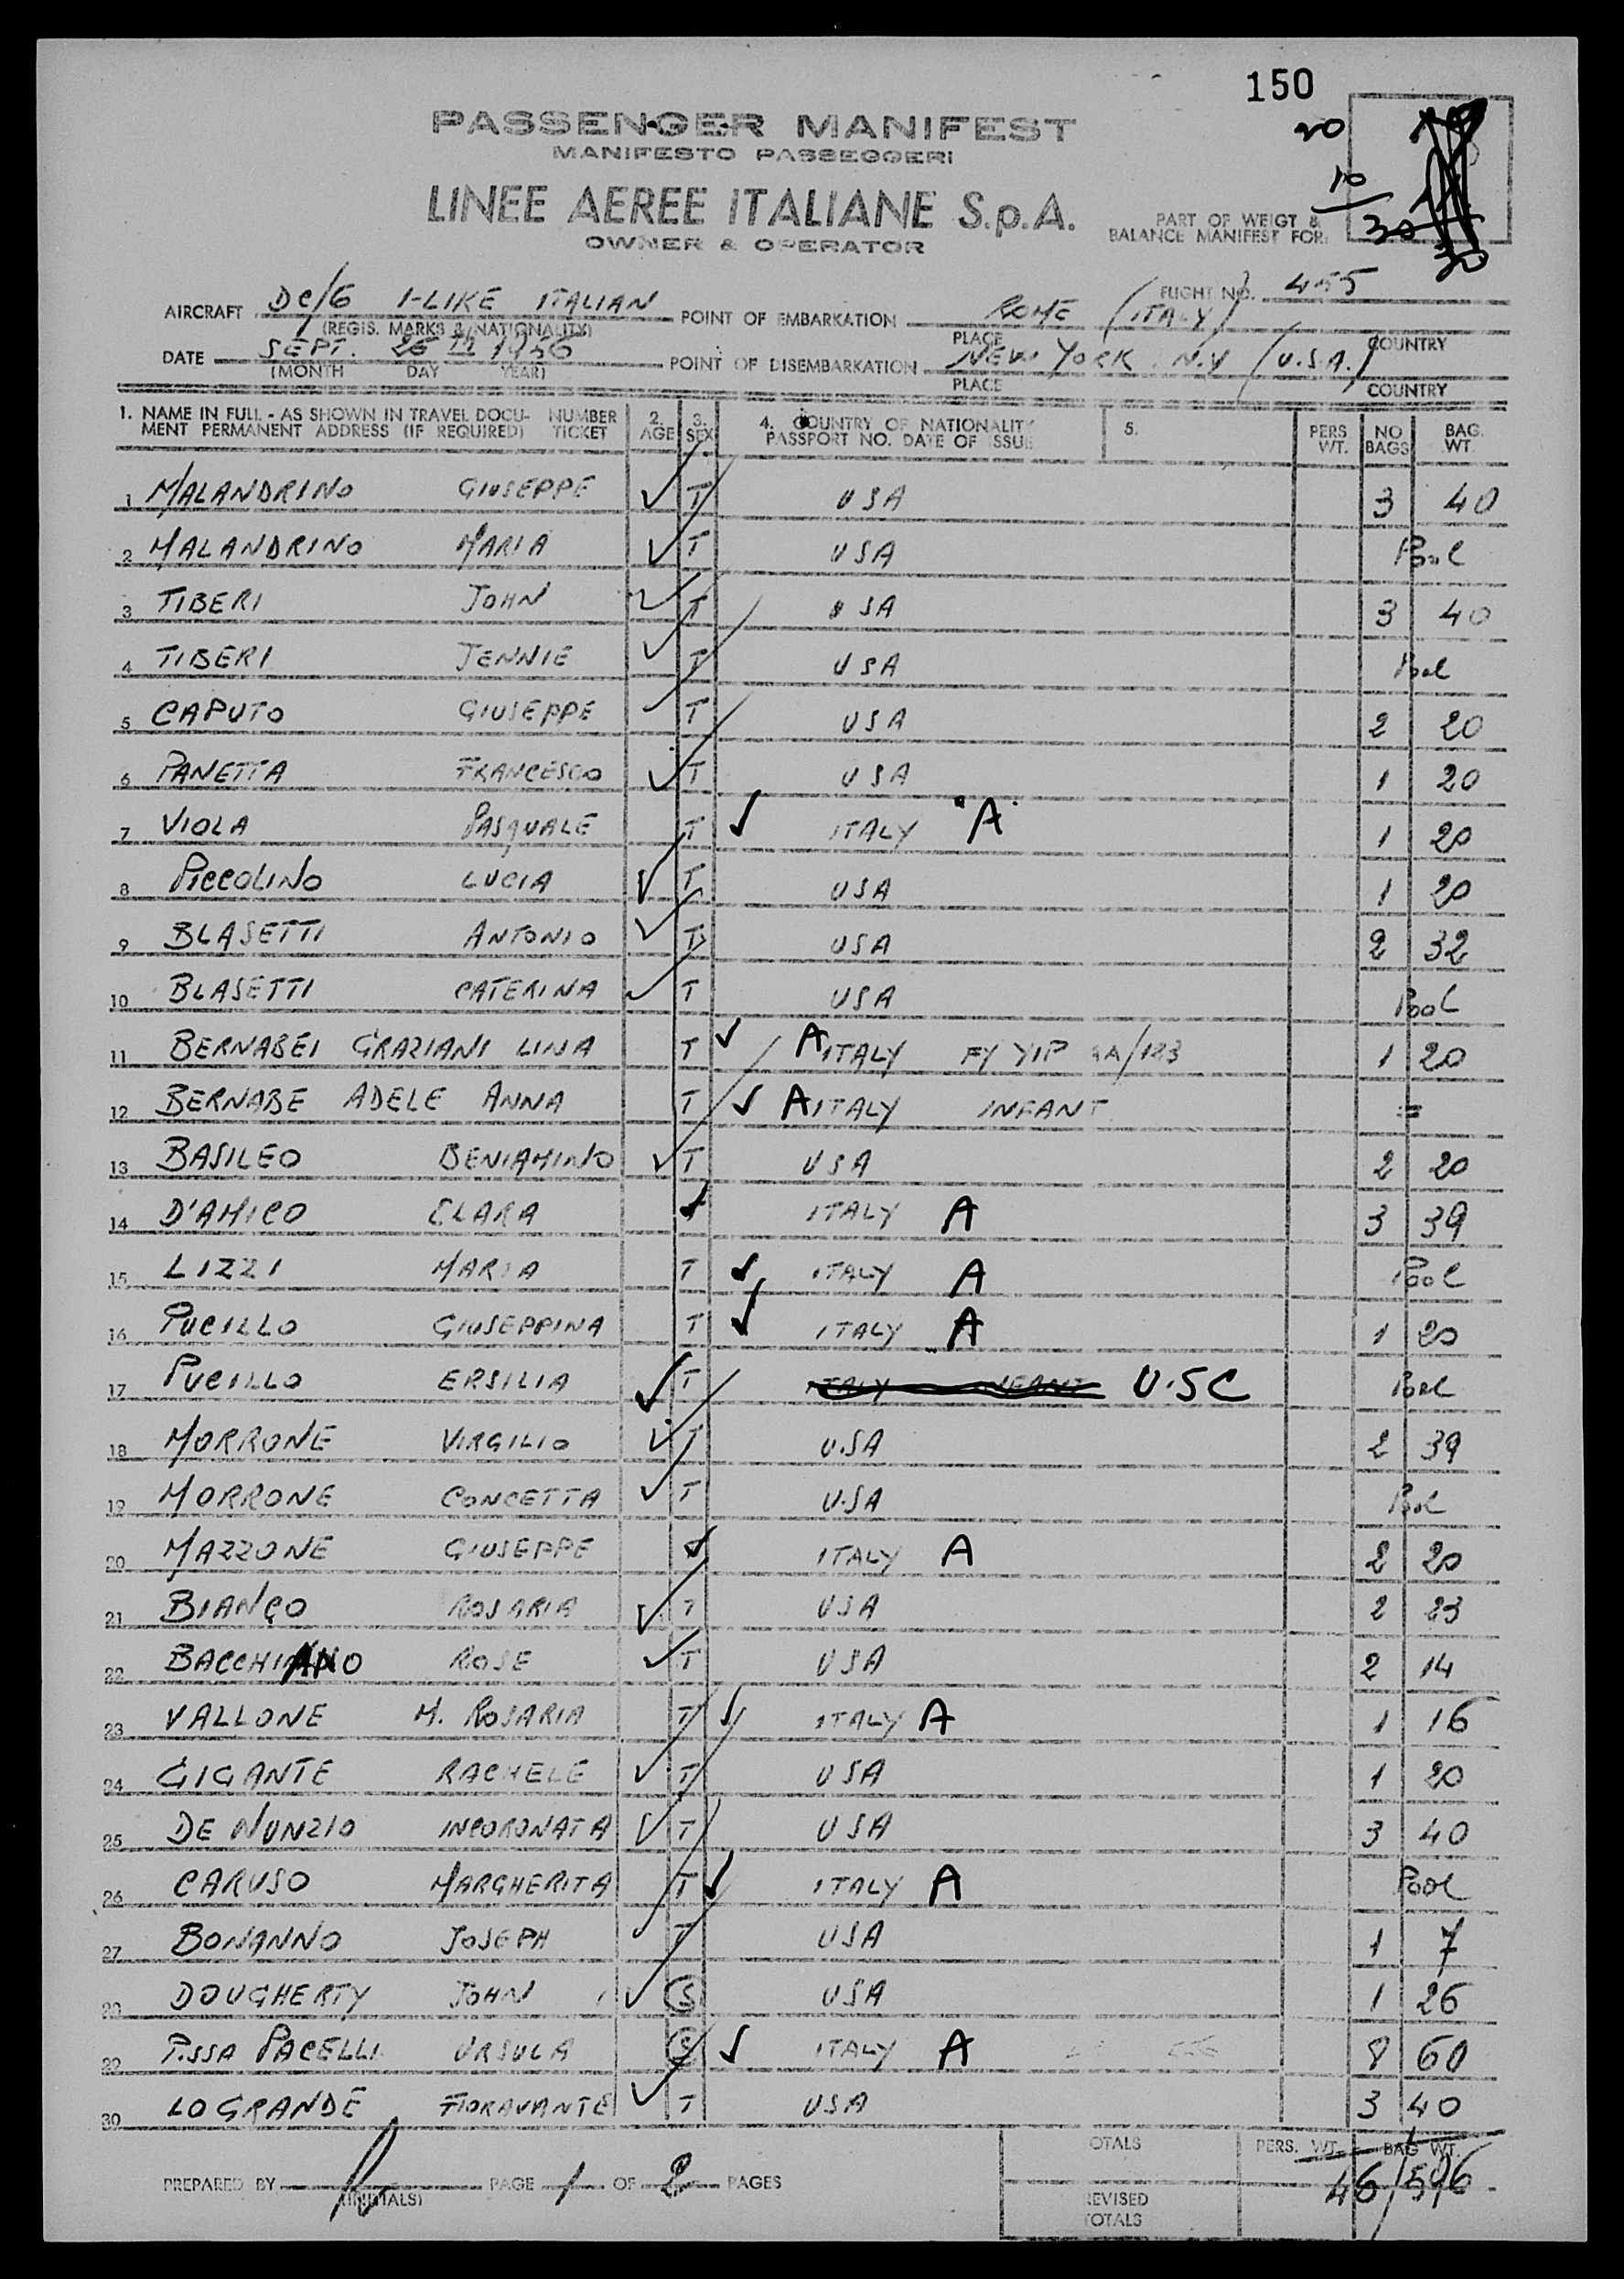 150
PASSENGER MANIFEST
MANIFESTO PASSEGGERI
LINEE AEREE ITALIANE S.p.A.
OWNER & OPERATOR
20
10
30
PART OF WEIGT &
BALANCE MANIFEST FOR:
30
FLIGHT NO. 455
AIRCRAFT DC/6 I-LIKE ITALIAN POINT OF EMBARKATION ROME (ITALY)
(REGIS. MARKS & NATIONALITY) PLACE COUNTRY
DATE SEPT. 26 TH 1956 POINT OF DISEMBARKATION NEW YORK N.Y (U.S.A.)
(MONTH DAY YEAR) PLACE COUNTRY
1. NAME IN FULL - AS SHOWN IN TRAVEL DOCU- NUMBER 2. 3. 4. COUNTRY OF NATIONALITY 5. PERS NO BAG.
MENT PERMANENT ADDRESS (IF REQUIRED) TICKET AGE SEX PASSPORT NO. DATE OF ISSUE WT. BAGS WT.
1 MALANDRINO GIUSEPPE T USA 3 40
2 MALANDRINO MARIA T USA Pool
3 TIBERI JOHN T USA 3 40
4 TIBERI JENNIE T USA Pool
5 CAPUTO GIUSEPPE T USA 2 20
6 PANETTA FRANCESCO T USA 1 20
7 VIOLA PASQUALE T ITALY "A" 1 20
8 PICCOLINO LUCIA T USA 1 20
9 BLASETTI ANTONIO T USA 2 32
10 BLASETTI CATERINA T USA Pool
11 BERNABEI GRAZIANI LINA T A ITALY FY YIP /123 1 20
12 BERNABE ADELE ANNA T A ITALY INFANT =
13 BASILEO BENIAMINO T USA 2 20
14 D'AMICO CLARA ITALY A 3 39
15 LIZZI MARIA T ITALY A Pool
16 PUCILLO GIUSEPPINA T ITALY A 1 20
17 PUCILLO ERSILIA T ITALY INFANT U.S C Pool
18 MORRONE VIRGILIO T U.SA 2 39
19 MORRONE CONCETTA T U.SA Pool
20 MAZZONE GIUSEPPE ITALY A 2 20
21 BIANCO ROSARIA T USA 2 23
22 BACCHIANO ROSE T USA 2 14
23 VALLONE M. ROSARIA T ITALY A 1 16
24 GIGANTE RACHELE T USA 1 20
25 DE NUNZIO INCORONATA T USA 3 40
26 CARUSO MARGHERITA T ITALY A Pool
27 BONANNO JOSEPH T USA 1 7
28 DOUGHERTY JOHN S USA 1 26
29 P.SSA PACELLI URSULA S ITALY A 8 60
30 LO GRANDE FIORAVANTE T USA 3 40
TOTALS PERS. WT. BAG WT.
46/596
PREPARED BY (INITIALS) PAGE 1 OF 2 PAGES
REVISED
TOTALS